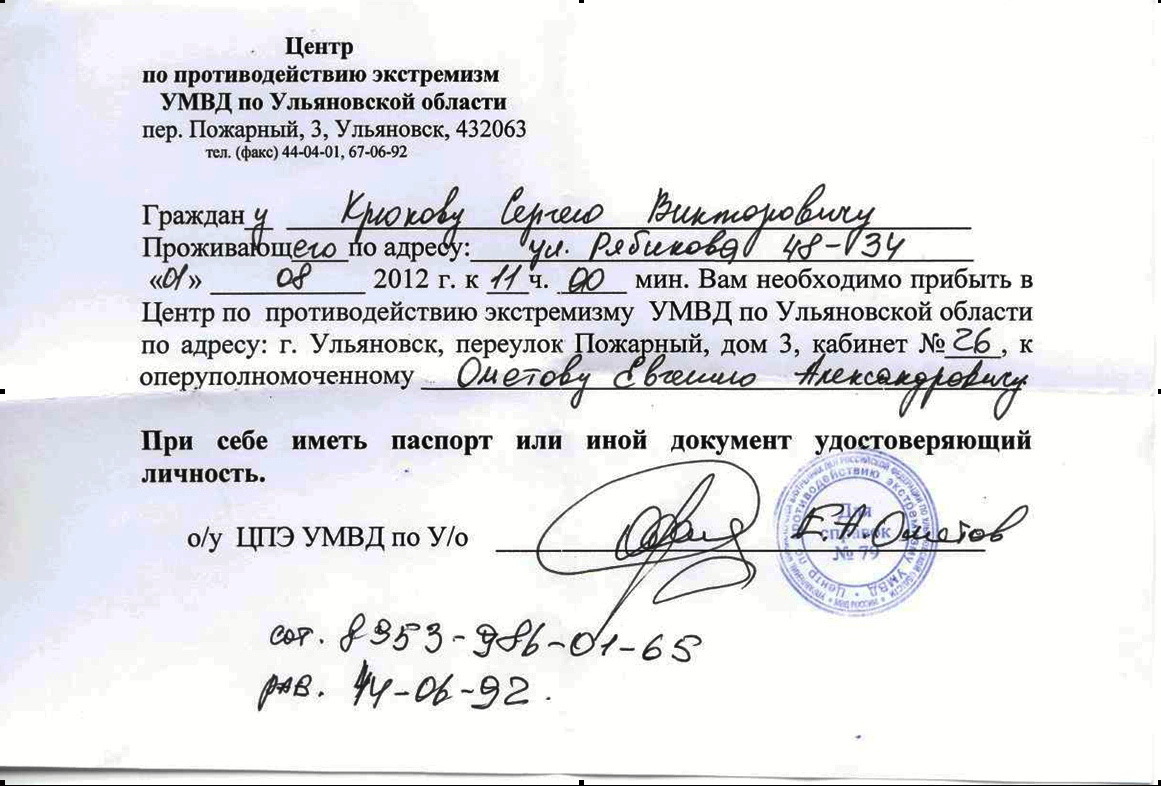 Центр
по противодействию экстремизм
УМВД по Ульяновской области
пер. Пожарный, 3, Ульяновск, 432063
тел. (факс) 44-04-01, 67-06-92
Граждану Крюкову Сергею Викторовичу
Проживающего по адресу: ул. Рябикова 48-34
«01» 08 2012 г. к 11 ч. 00 мин. Вам необходимо прибыть в
Центр по противодействию экстремизму УМВД по Ульяновской области
по адресу: г. Ульяновск, переулок Пожарный, дом 3, кабинет № 26, к
оперуполномоченному Ометову Евгению Александровичу
При себе иметь паспорт или иной документ удостоверяющий
личность.
о/у ЦПЭ УМВД по У/о Е.А. Ометов
Для
справок
№ 79
Центр по противодействию экстремизму УМВД
сот. 8953-986-01-65
раб. 44-06-92.